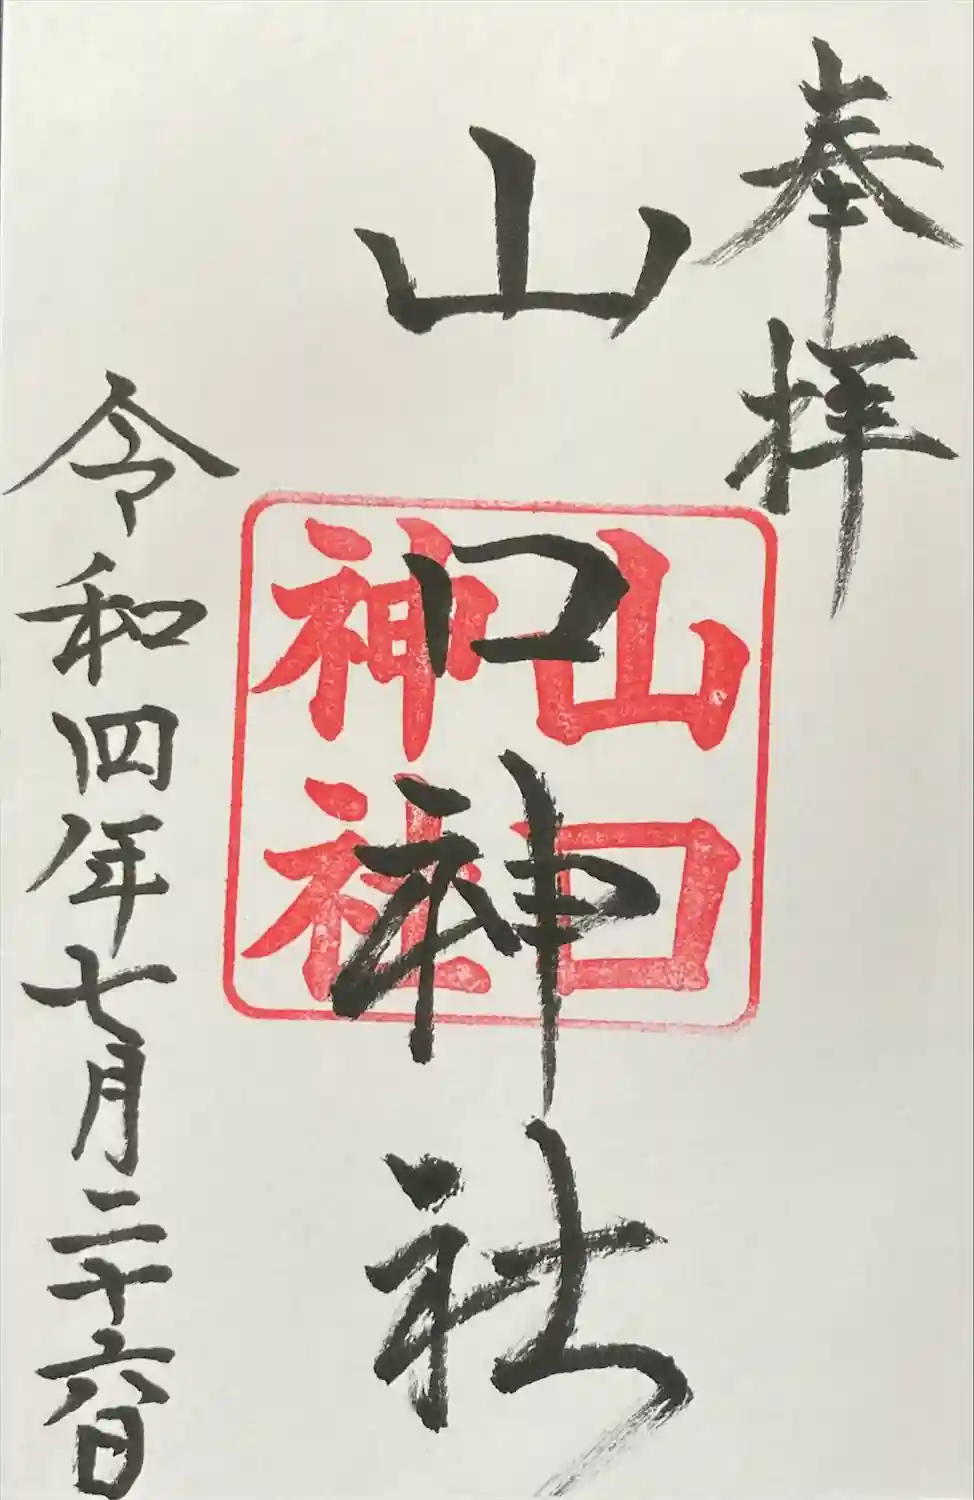 奉拝
山口神社
山口
神社
令和四年七月二十六日